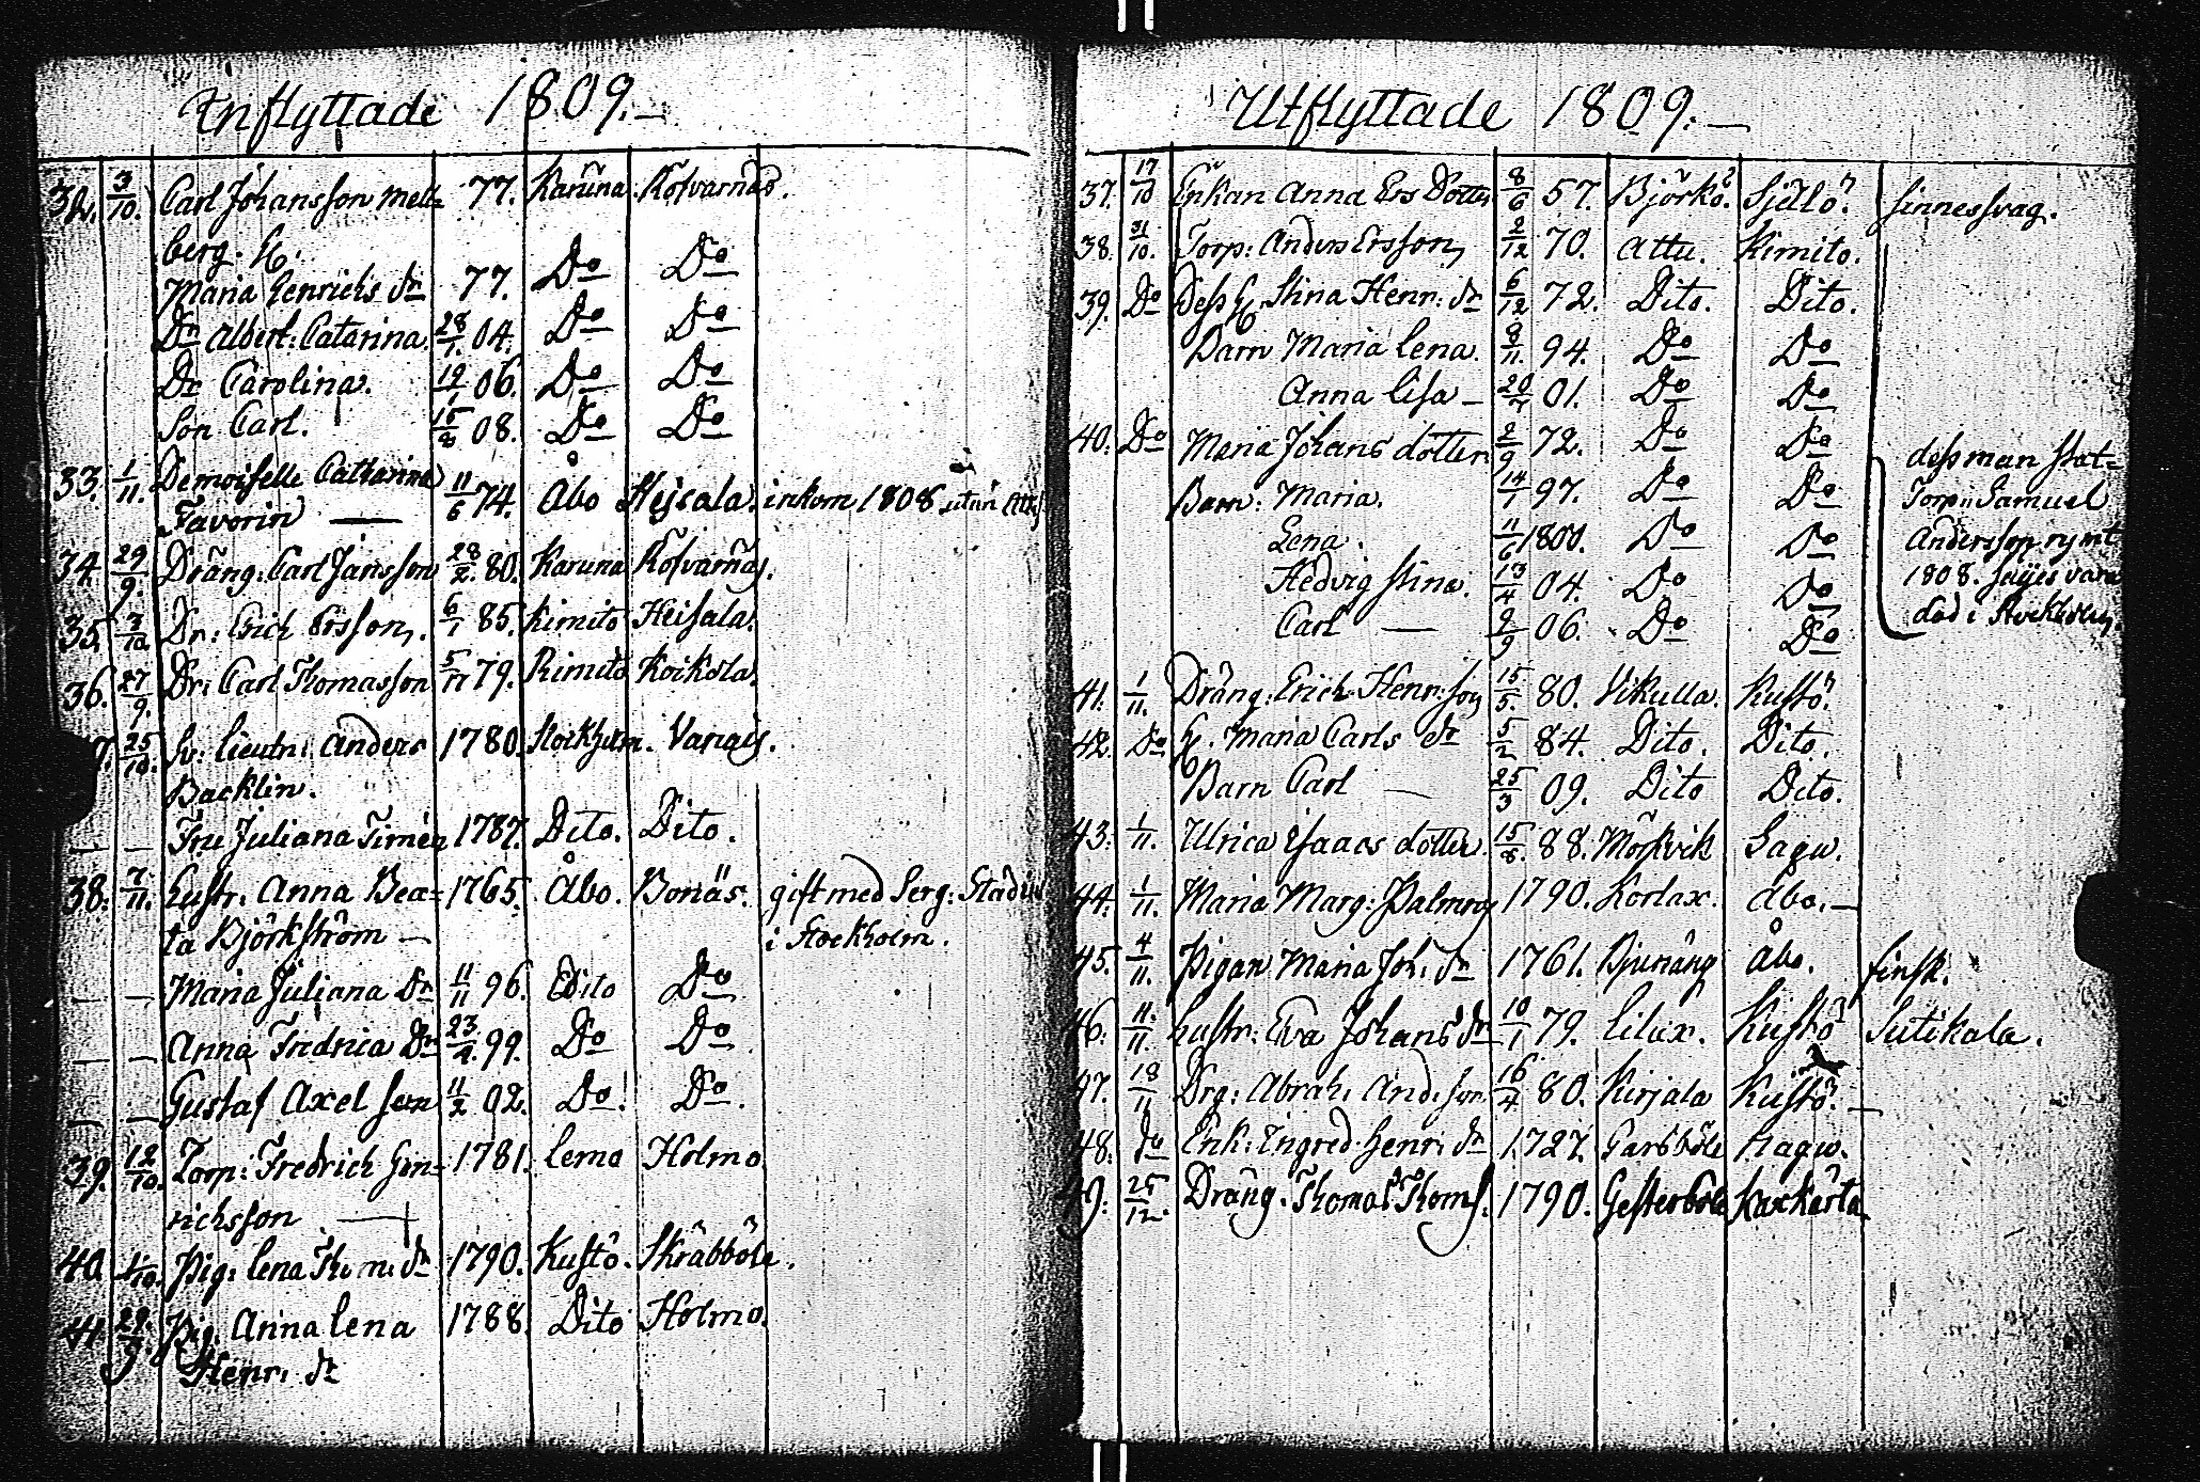 Inflyttade 1809.
32. 3/10. Carl Johansson Mell= 77. Karuna. Kofvarnäs.
berg. H.
Maria Henrichs dr 77. Do Do
Dr Albert: Catarina. 28/1. 04. Do Do
Dr Carolina. 19/1 06. Do Do
Son Carl. 15/8 08. Do Do
33. 1/11. Demoiselle Catharina 11/6 74. Åbo Heisala. inkom 1808 utan Att.
Favorin —
34. 29/9. Dräng: Carl Jansson 28/2. 80. Karuna Kofvarnäs.
35. 3/10 Dr: Erich Ersson. 6/1 85. Kimito Heisala.
36. 27/9. Dr: Carl Thomasson 5/11 79. Kimito Koiksla.
7. 25/10. Hr: Lieutn: Anders 1780. Stockholm. Vanais.
Backlin.
— — Fru Juliana Timén 1787. Dito. Dito.
38. 7/11. Hustr. Anna Bea= 1765. Åbo. Bonäs. gift med Serg: Stadin
ta Björkström — i Stockholm.
— — Maria Juliana Dr 11/11 96. Dito Do
— — Anna Fredrica Dr 23/4. 99. Do Do
— — Gustaf Axel son 11/2 02. Do. Do.
39. 12/10. Torp: Fredrich Hen= 1781. Lemo Holmo
richsson —
40. 1/10. Pig: Lena Thom: dr 1790. Kustö. Skräbböle.
41. 29/9. Pig. Anna Lena 1788. Dito Holmo.
Henr: dr
Utflyttade 1809.
37. 17/10 Enkan Anna Ers Dotter 8/6 57. Björkö. Själö. sinnessvag.
38. 31/10. Torp: Anders Ersson, 2/12 70. Attu. Kimito.
39. Do Dess H. Stina Henr: dr 6/12 72. Dito. Dito.
Barn Maria Lena. 8/11. 94. Do Do
Anna Lisa — 20/7 01. Do Do
40. Do Maria Johans dotter 2/9 72. Do Do
Barn: Maria. 14/1 97. Do Do
Lena. 11/6 1800. Do Do
Hedvig Stina. 13/4 04. Do Do
Carl — 2/9 06. Do Do
dess man Stat=
Torp: Samuel
Andersson rymt
1808. säijes vara
död i Stockholm.
41. 1/11. Dräng: Erich Henr: son 15/5. 80. Vikulla. Kustö.
42. Do H. Maria Carls dr 5/2 84. Dito. Dito.
Barn Carl — 25/3 09. Dito Dito.
43. 1/11. Ulrica Isaacs dotter. 15/8. 88. Mörkvik Sagu.
44. 1/11. Maria Marg: Palmroos 1790. Korlax. Åbo. —
45. 4/11. Pigan Maria Joh: dr 1761. Bjunäng Åbo. finsk.
46. 11./11. Hustr: Eva Johans dr 10/1 79. Lilax. Kustö Sutikala.
47. 18/11 Drg: Abrah: And: son 16/4 80. Kirjala Kustö. —
48. do Enk: Ingred Henr: dr 1727. Garsböle Nagu.
49. 25/12. Dräng. Thomas Thoms. 1790. Gesterböle Karkärta.